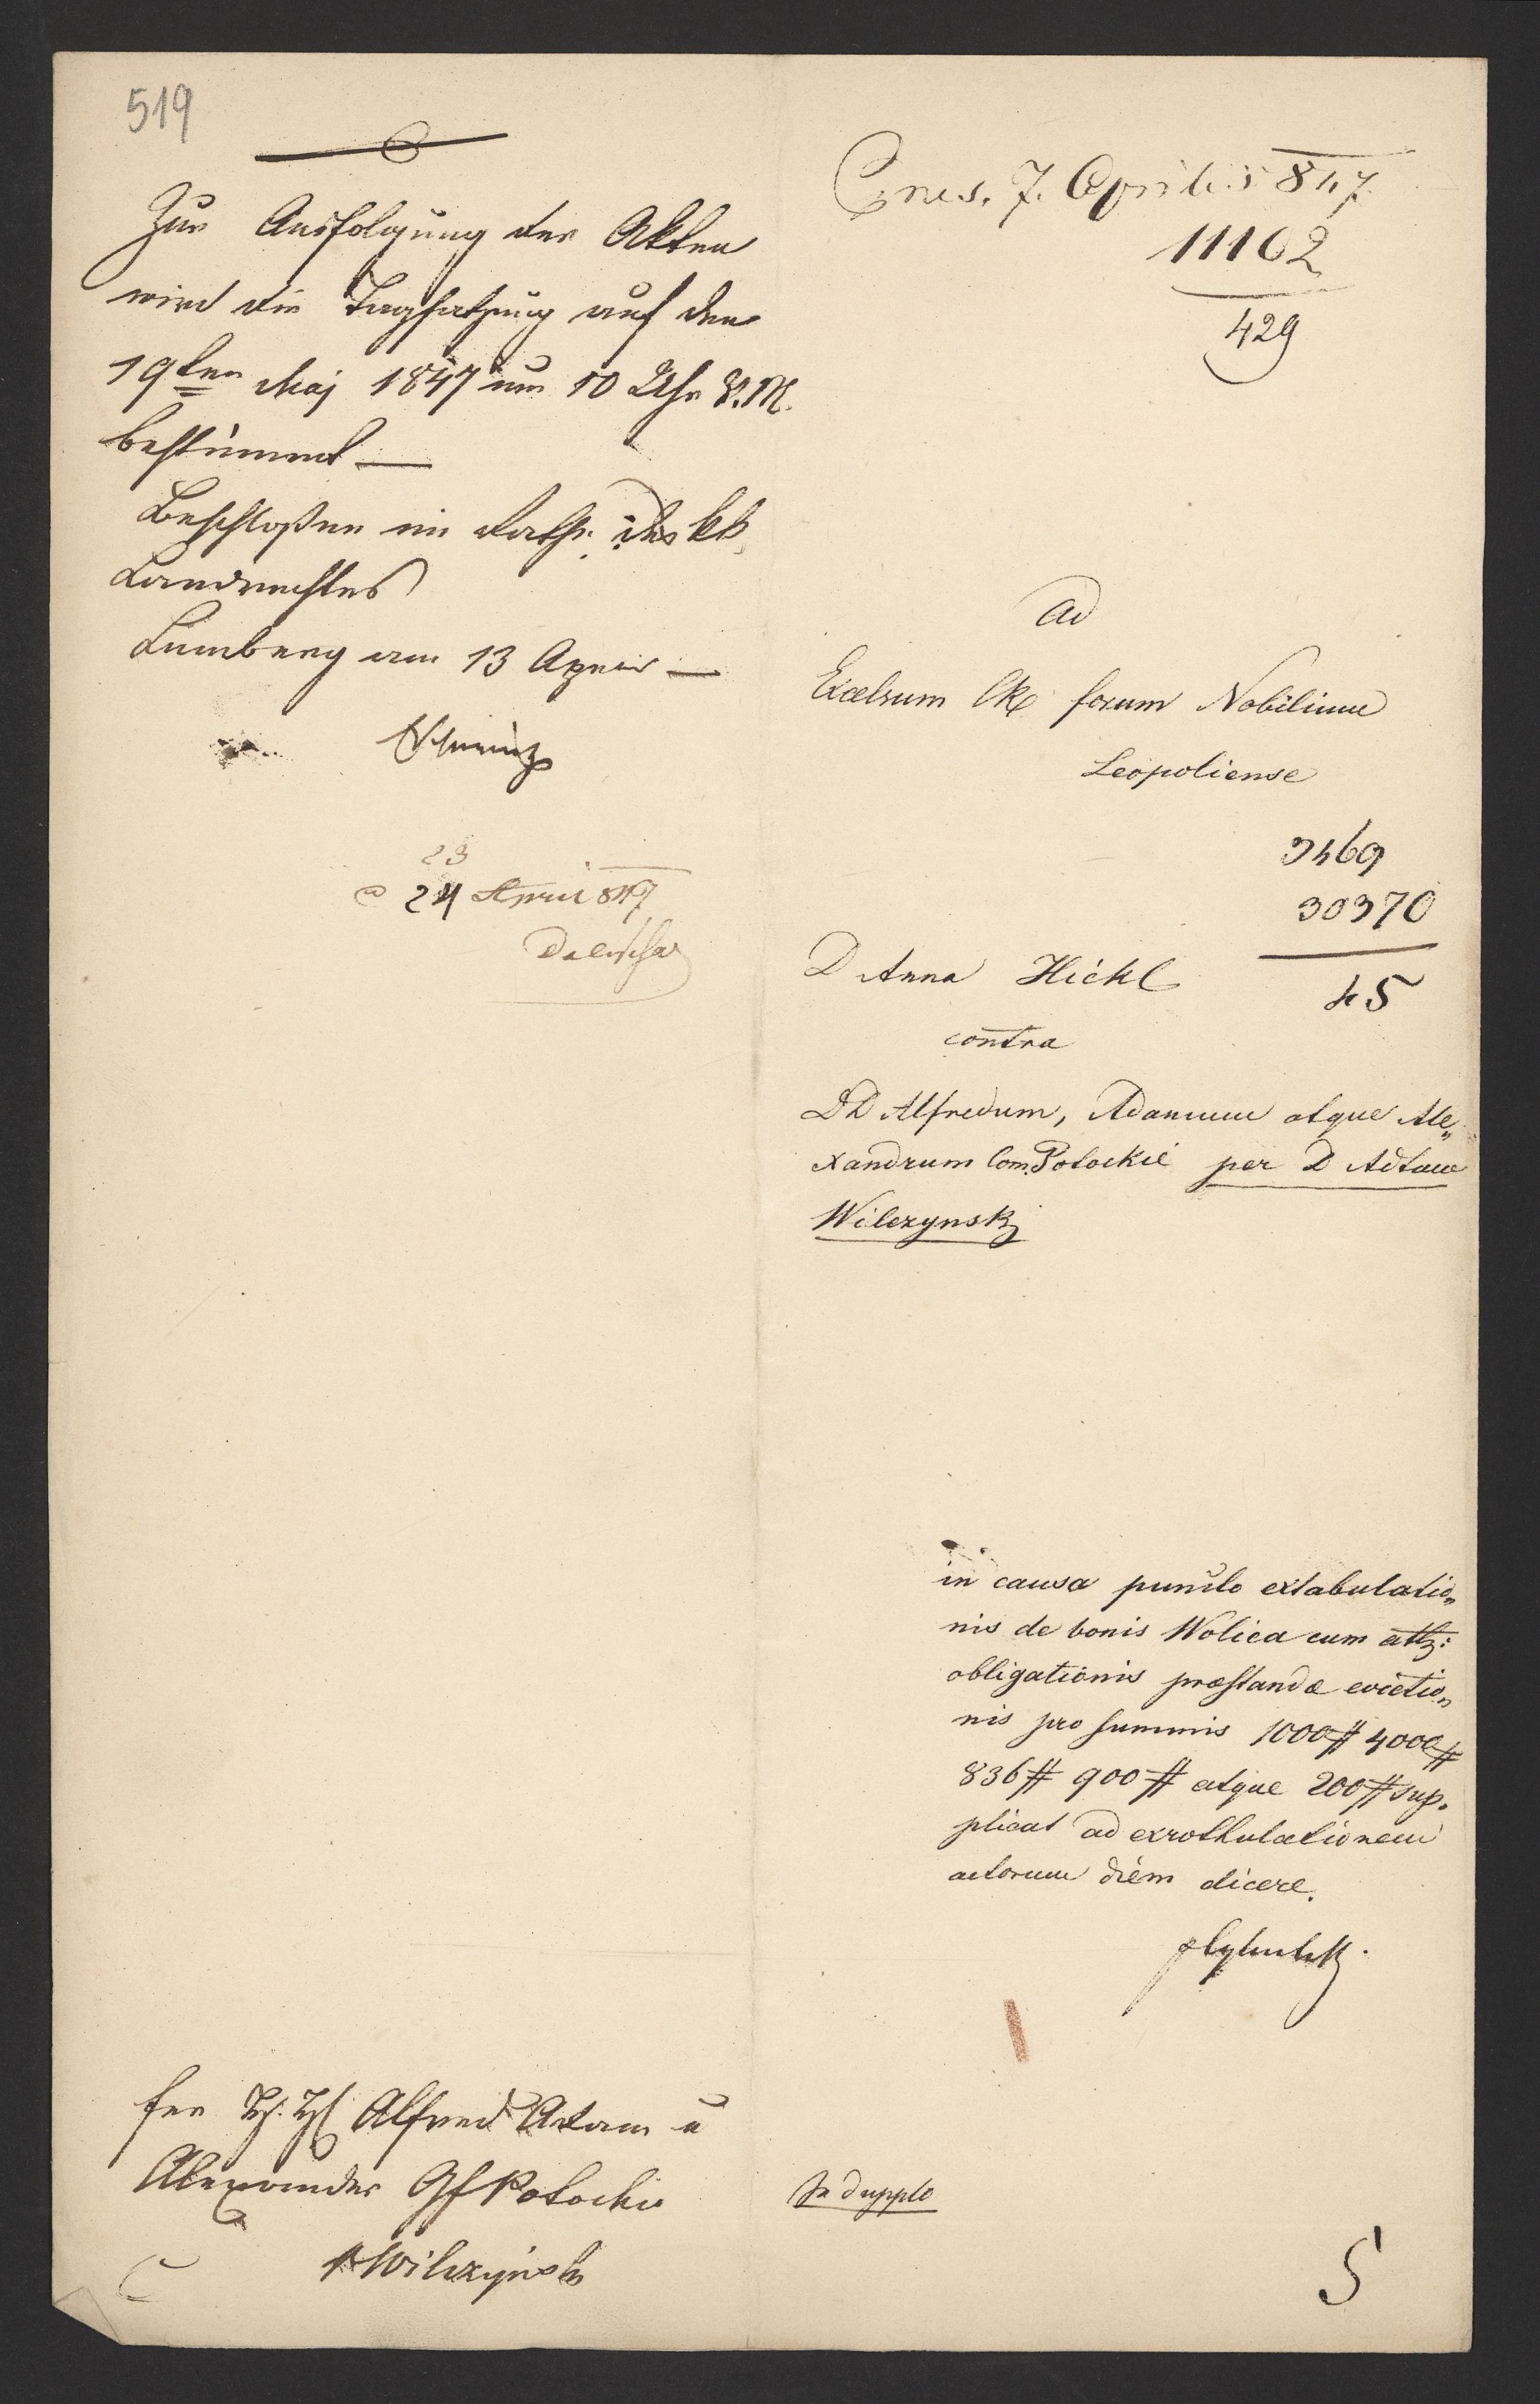 519
Zur Ausfolgung der Akten
wird die Tagsatzung auf den
19ten Maj 1847 um 10 Uhr V.M.
bestimmt —
Beschloßen im Rathe des kk
Landrechtes
Lemberg am 13 April —
23
24 April 847
Præs. 7. Aprilis 847
11162
429
Ad
Excelsum CR forum Nobilium
Leopoliense
3469
30370
45
D Anna Hickl
contra
DD Alfredum, Adamum atque Ale„
xandrum Com. Potockie per D Adtum
Wilczynski
in causa puncto extabulatio„
nis de bonis Wolica cum attz:
obligationis præstandæ evictio„
nis pro summis 1000# 4000#
836# 900# atque 200# sup„
plicat ad exrothulationem
actorum diem dicere.
für H. H. Alfred Adam u
Alexander Gf Potockie
Wilczynski
In duplo
S